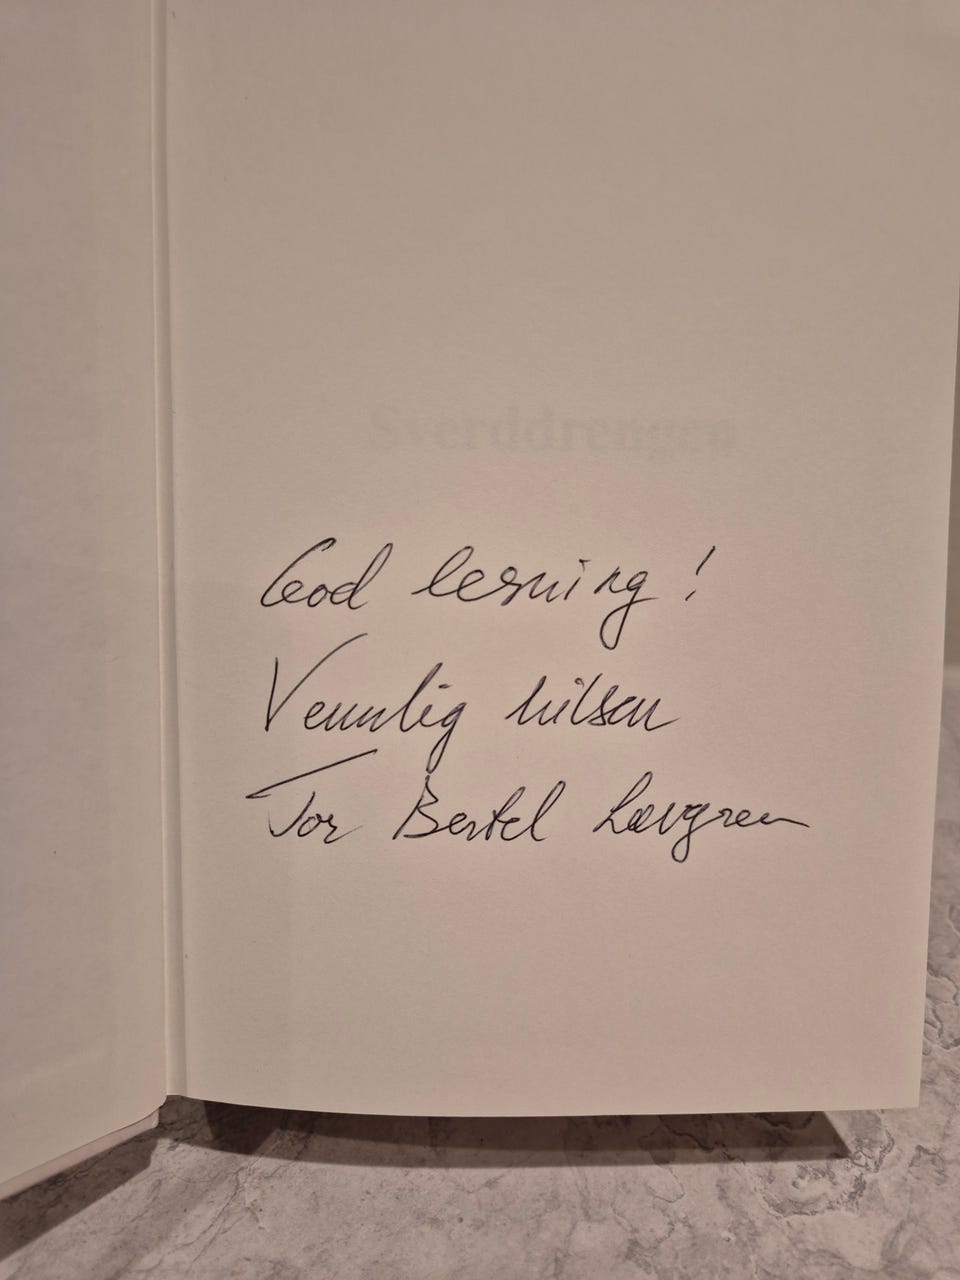 Sverddrengen
God lesning!
Vennlig hilsen
Tor Bertel Løvgren